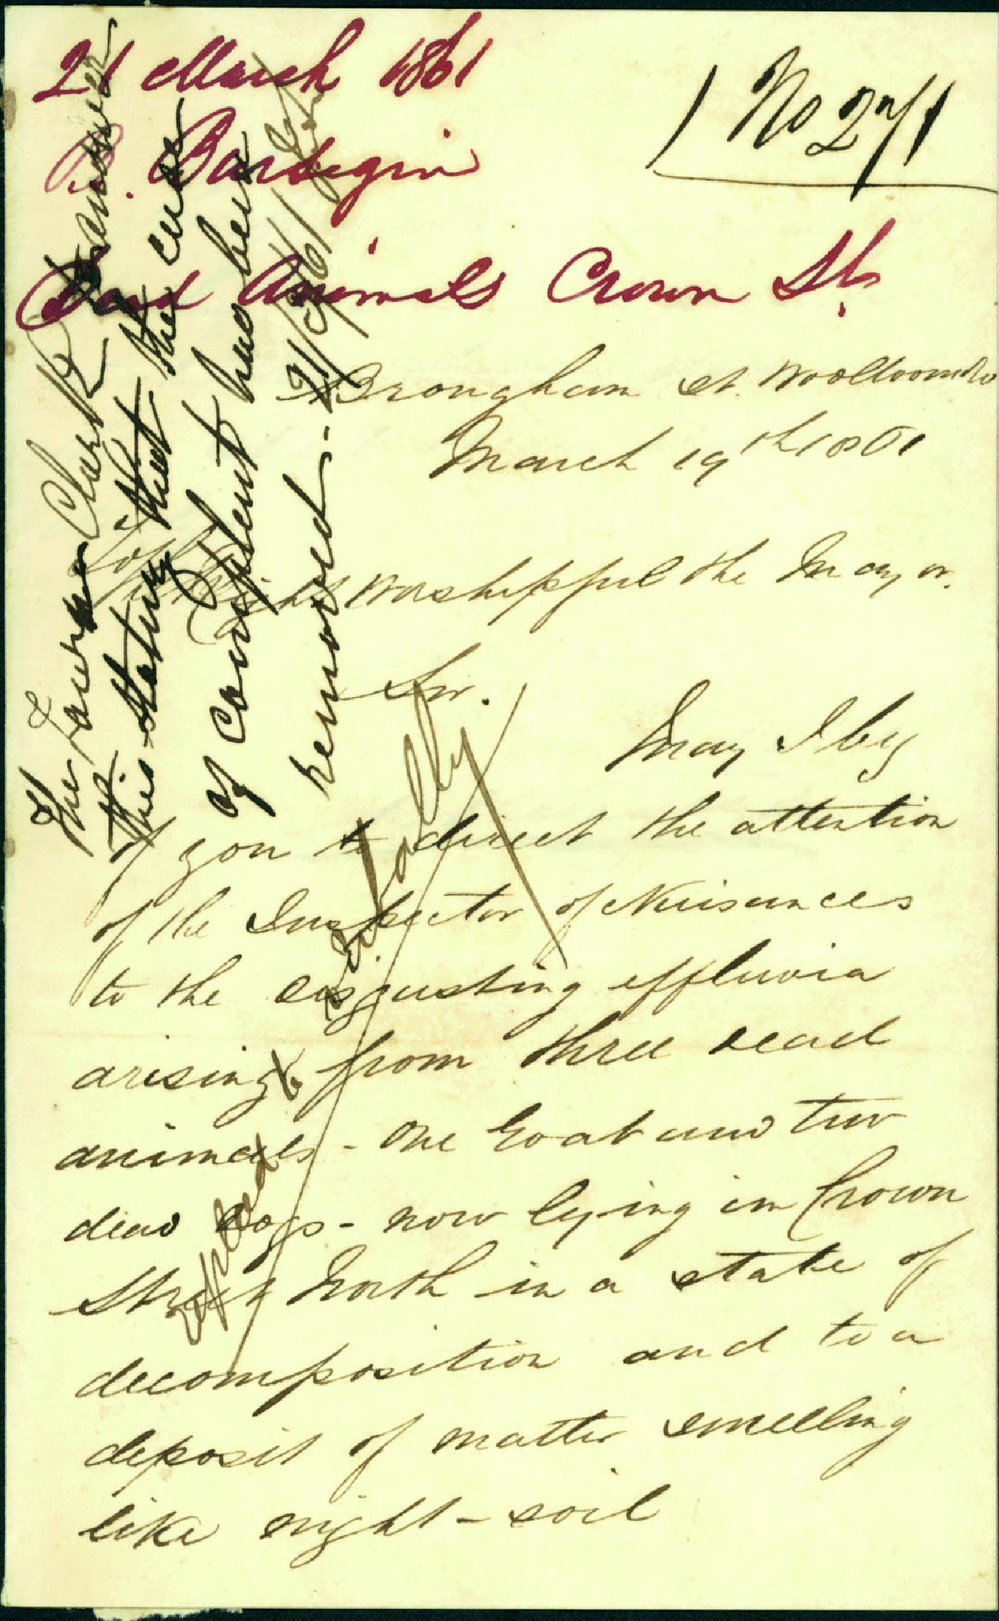 21 March 1861
No 271
R. Bardegin
Dead Animals Crown St.
Brougham St. Woolloomoloo
March 19th 1861
To the
Right Worshipful the Mayor.
Sir.
May I beg
of you to direct the attention
of the Inspector of Nuisances
to the disgusting effluvia
arising from three dead
animals - one Goat and two
dead dogs - now lying in Crown
Street North in a state of
decomposition and to a
deposit of matter smelling
like night-soil
The Town Clerk answered
this stating that the cause
of complaint had been
removed - 21/3/61
replied to verbally